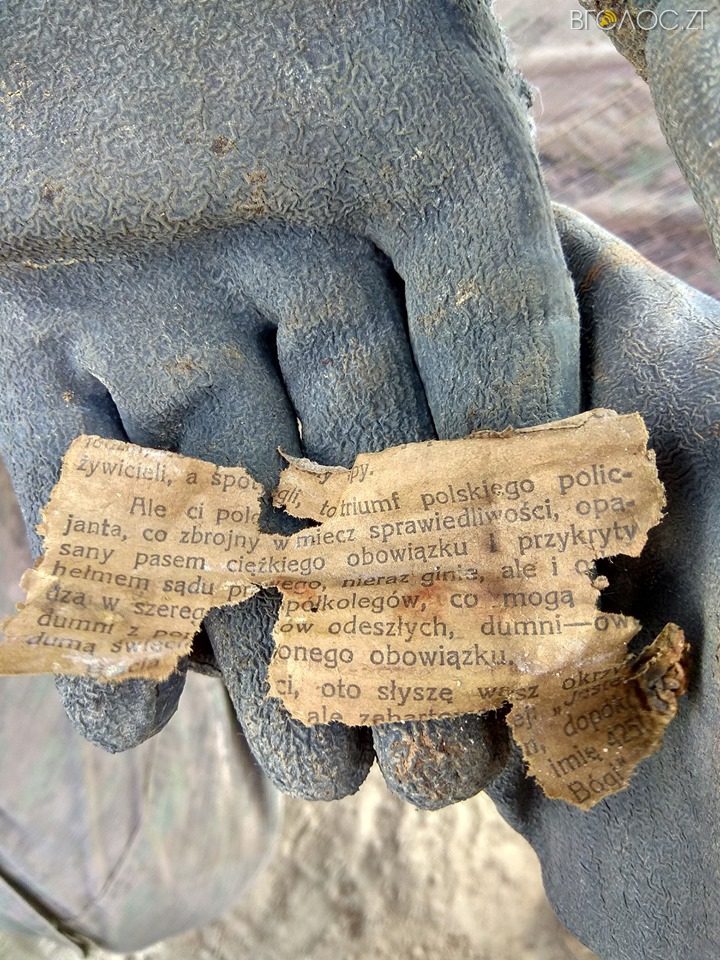 ВГОЛОС.ZT
żywicieli, a spo py.
gli, to triumf polskiego polic-
Ale ci pol
janta, co zbrojny w miecz sprawiedliwości, opa-
sany pasem ciężkiego obowiązku i przykryty
hełmem sądu pr ego, nieraz ginie, ale i o
dza w szereg półkolegów, co mogą
dumni z ów odeszłych, dumni—ow
dumą świec onego obowiązku.
ci, oto słyszę wasz okrzy
ale zeharto ej "Jeste
ń, dopók
imię
Bógi"